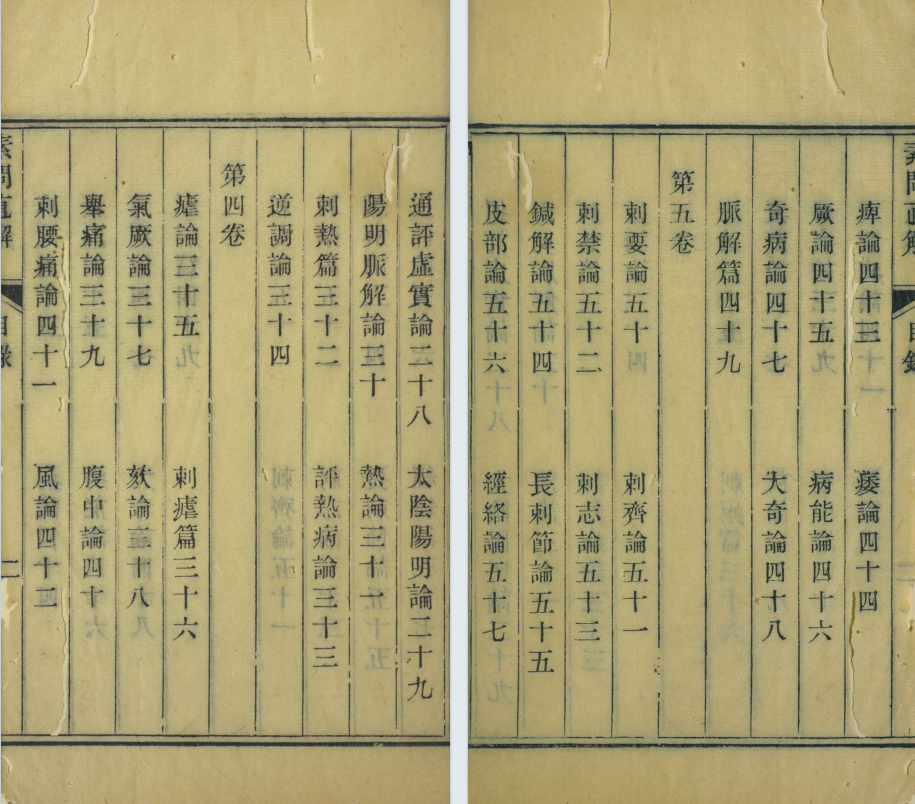 通評虛實論二十八 太陰陽明論二十九
陽明脈解論三十 熱論三十一
刺熱篇三十二 評熱病論三十三
逆調論三十四
第四卷
瘧論三十五 刺瘧篇三十六
氣厥論三十七 欬論三十八
舉痛論三十九 腹中論四十
刺腰痛論四十一 風論四十二
素問直解 目錄 二
痺論四十三 痿論四十四
厥論四十五 病能論四十六
奇病論四十七 大奇論四十八
脈解篇四十九
第五卷
刺要論五十 刺齊論五十一
刺禁論五十二 刺志論五十三
鍼解論五十四 長刺節論五十五
皮部論五十六 經絡論五十七